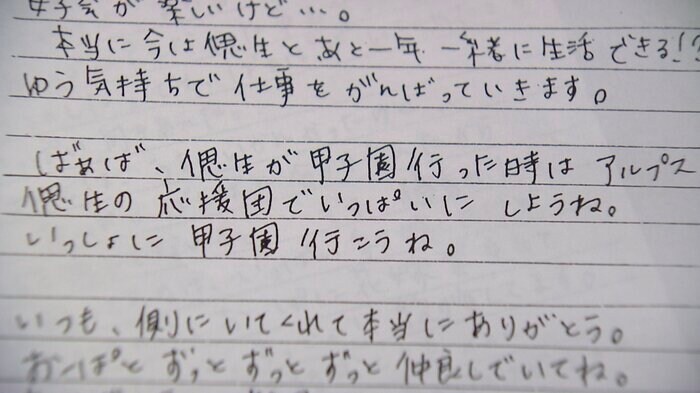 女子会が楽しいけど…。
本当に今は偲生とあと一年一緒に生活できる!?
ゆう気持ちで仕事をがんばっていきます。
ばぁば、偲生が甲子園行った時はアルプス
偲生の応援団でいっぱいにしようね。
いっしょに甲子園行こうね。
いつも、側にいてくれて本当にありがとう。
おーぱとずっとずっとずっと仲良しでいてね。